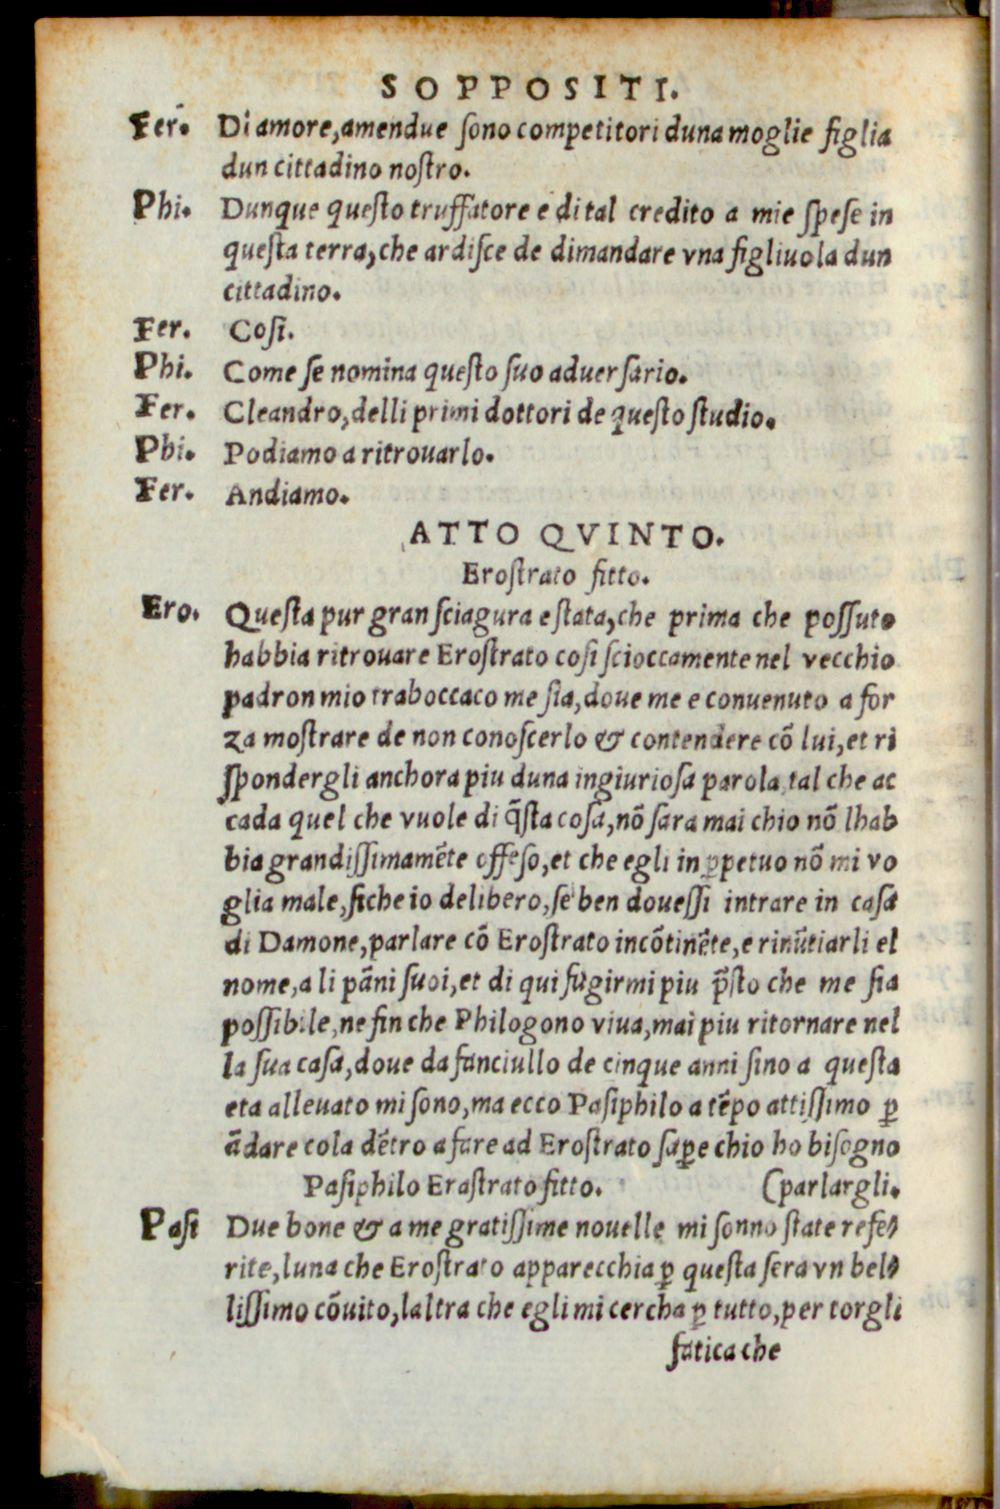 SOPPOSITI.
Fer. Di amore, amendue sono competitori duna moglie figlia
dun cittadino nostro.
Phi. Dunque questo truffatore e di tal credito a mie spese in
questa terra, che ardisce de dimandare vna figliuola dun
cittadino.
Fer. Cosi.
Phi. Come se nomina questo suo aduersario.
Fer. Cleandro, delli primi dottori de questo studio.
Phi. Podiamo a ritrouarlo.
Fer. Andiamo.
ATTO QVINTO.
Erostrato fitto.
Ero. Questa pur gran sciagura e stata, che prima che possuto
habbia ritrouare Erostrato cosi scioccamente nel vecchio
padron mio traboccaco me sia, doue me e conuenuto a for
za mostrare de non conoscerlo & contendere cõ lui, et ri
spondergli anchora piu duna ingiuriosa parola, tal che ac
cada quel che vuole di q̃sta cosa, nõ sara mai chio nõ lhab
bia grandissimamẽte offeso, et che egli in ꝑpetuo nõ mi vo
glia male, siche io delibero, se ben douessi intrare in casa
di Damone, parlare cõ Erostrato incõtinẽte, e rinũtiarli el
nome, a li pãni suoi, et di qui fugirmi piu p̃sto che me sia
possibile, ne fin che Philogono viua, mai piu ritornare nel
la sua casa, doue da fanciullo de cinque anni sino a questa
eta alleuato mi sono, ma ecco Pasiphilo a tẽpo attissimo ꝑ
ãdare cola dẽtro a fare ad Erostrato saꝑe chio ho bisogno
Pasiphilo Erastrato fitto. (parlargli.
Pasi Due bone & a me gratissime nouelle mi sonno state refe/
rite, luna che Erostrato apparecchia ꝑ questa sera vn bel/
lissimo cõuito, laltra che egli mi cercha ꝑ tutto, per torgli
fatica che